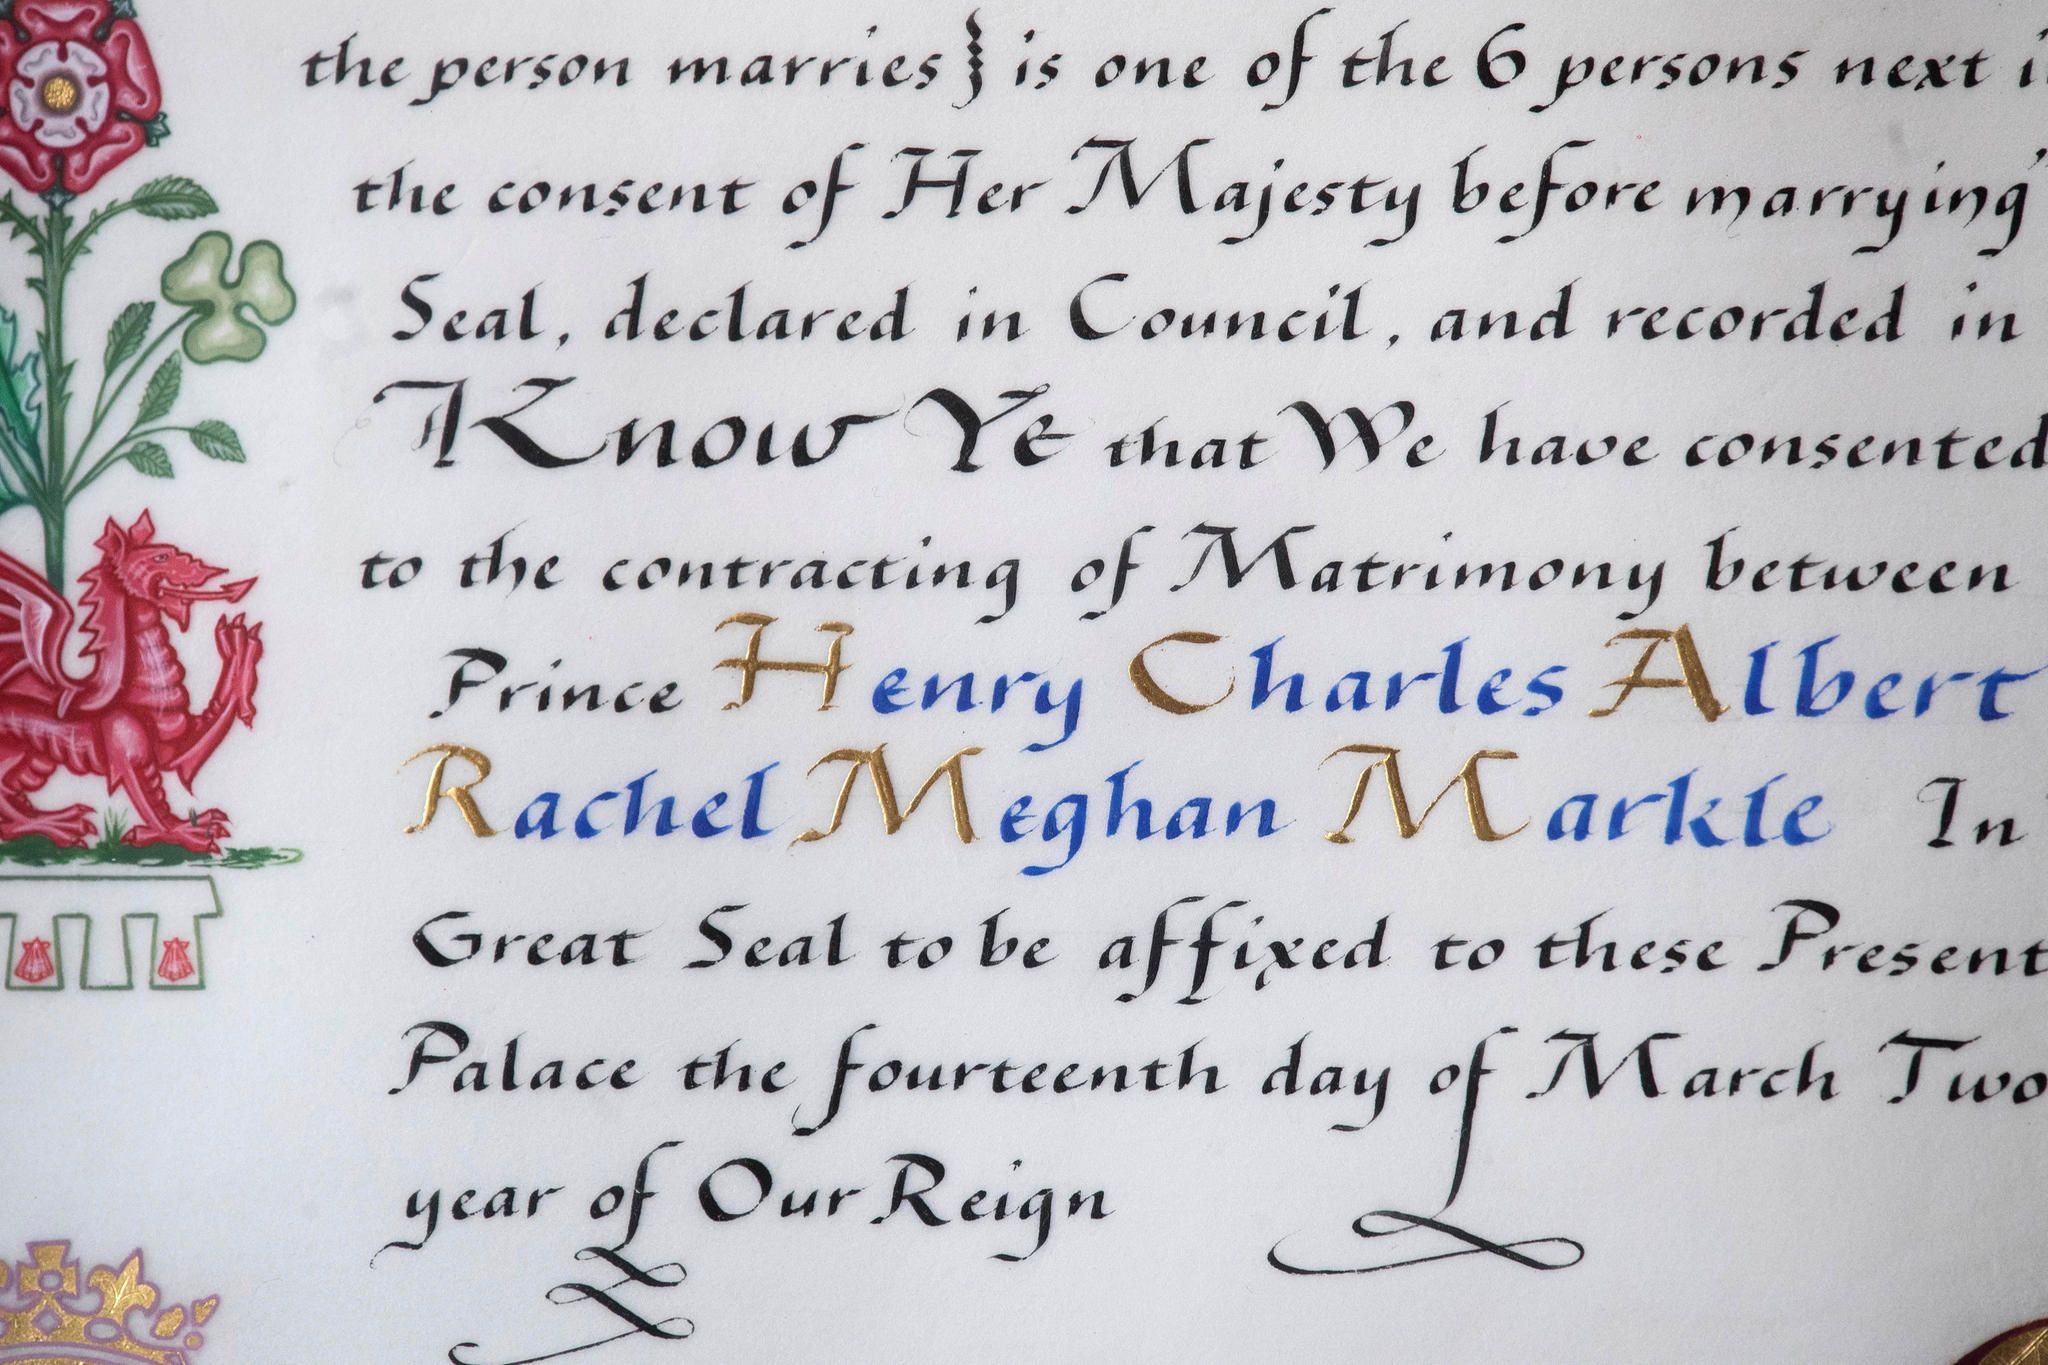 the person marries } is one of the 6 persons next
the consent of Her Majesty before marrying
Seal, declared in Council, and recorded in
Know Ye that We have consented
to the contracting of Matrimony between
Prince Henry Charles Albert
Rachel Meghan Markle In
Great Seal to be affixed to these Present
Palace the fourteenth day of March Two
year of Our Reign